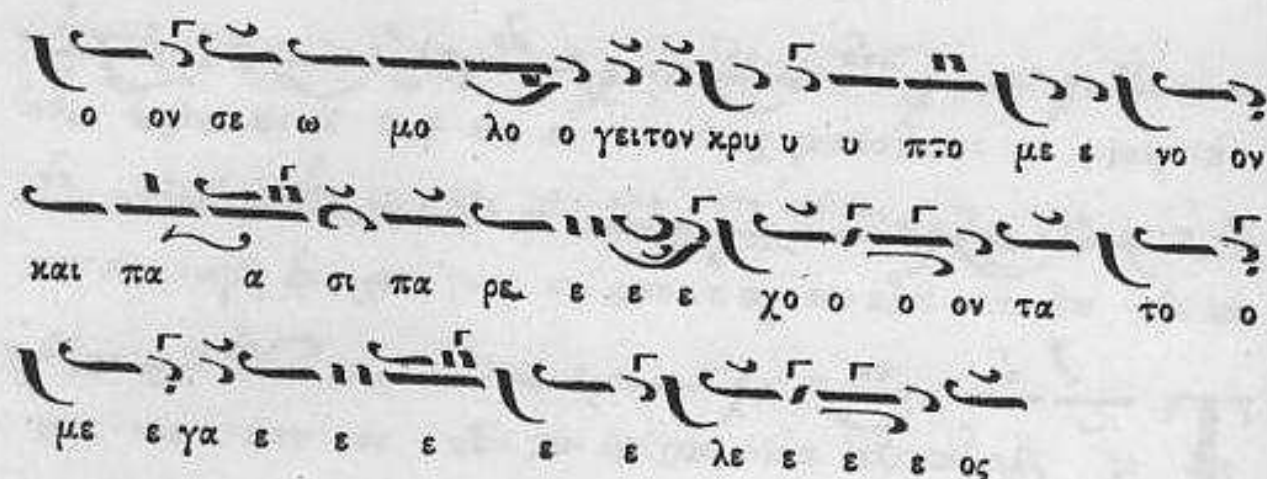 ο ον σε ω μο λο ο γειτον κρυ υ υ πτο με ε νο ον
και πα α σι πα ρε ε ε ε χο ο ο ον τα το ο
με ε γα ε ε ε ε ε λε ε ε ε ος